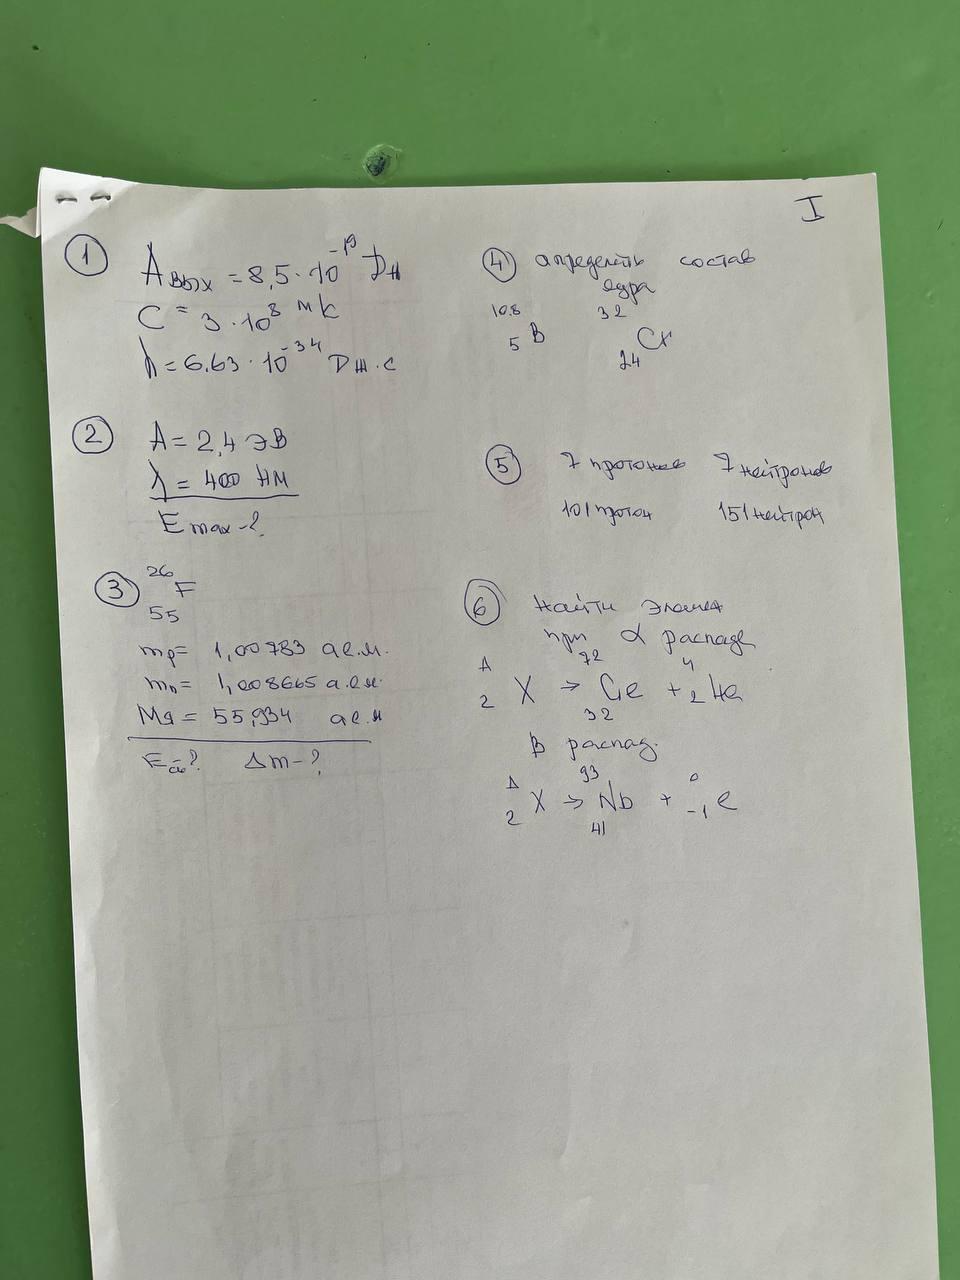 I
① Aвых = 8,5 · 10⁻¹⁹ Дж
C = 3 · 10⁸ м/с
h = 6.63 · 10⁻³⁴ Дж · с
② A = 2,4 эВ
λ = 400 нм
E max - ?
③ ²⁶₅₅F
mp = 1,00783 а.е.м.
mn = 1,008665 а.е.м.
Mя = 55,934 а е.м
Eсв - ? Δm - ?
④ определить состав
ядра
¹⁰·⁸₅B ³²₂₄Cr
⑤ 7 протонов 7 нейтронов
101 протон 151 нейтрон
⑥ найти элемент
при α распаде
ᴬ₂X → ⁷²₃₂Ge + ⁴₂He
B распад.
ᴬ₂X → ⁹³₄₁Nb + ⁰₋₁e